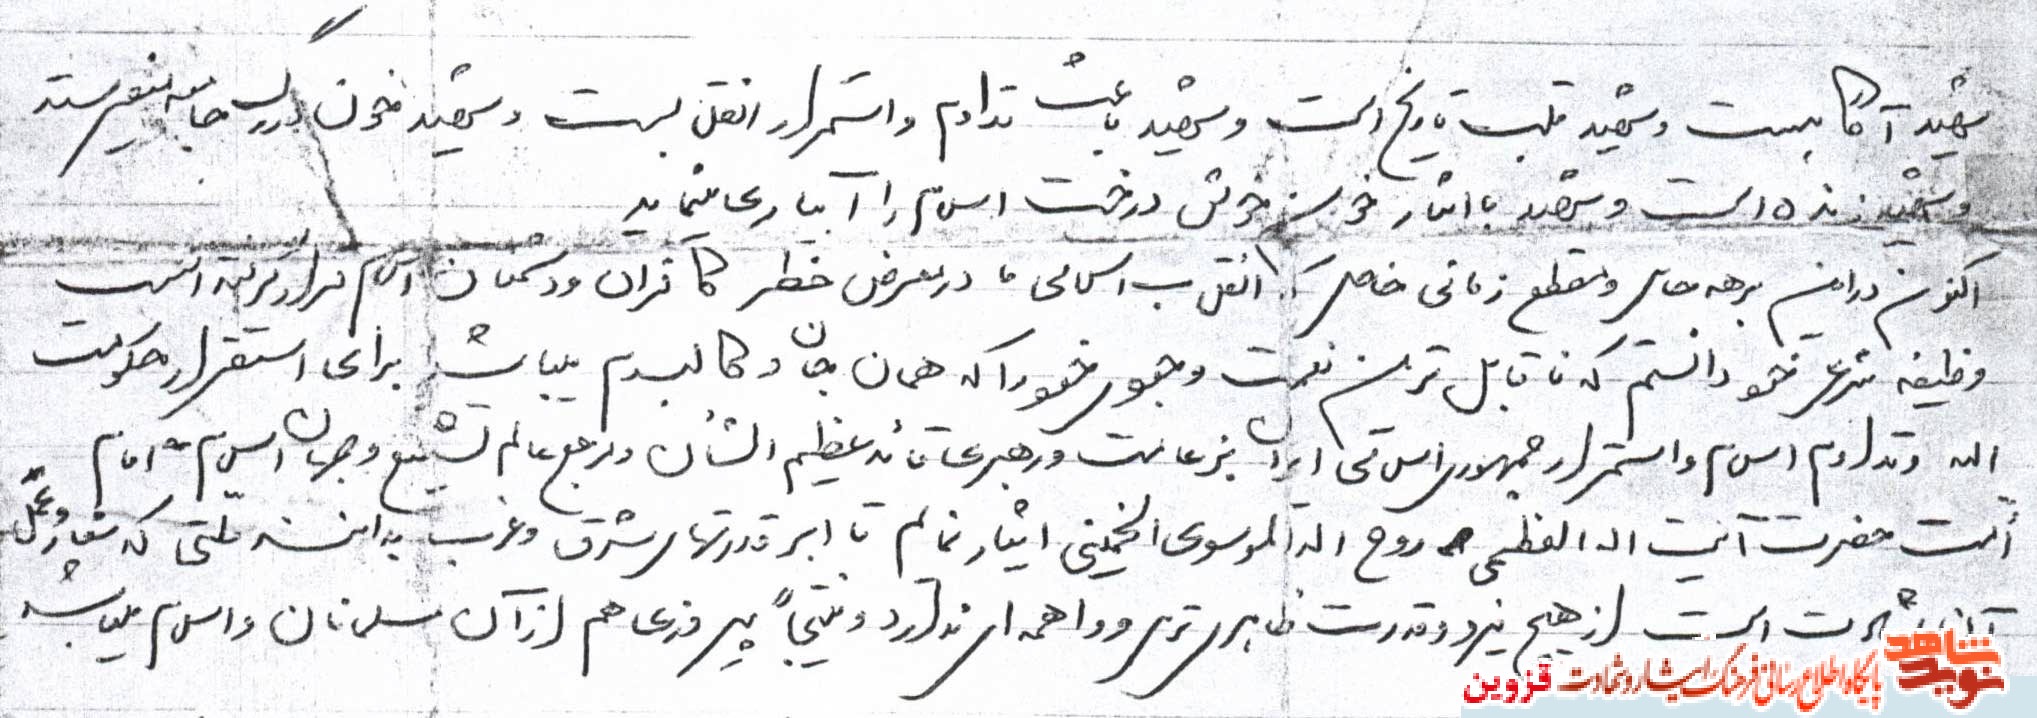 شهید آگاهست و شهید قلب تاریخ است و شهید باعث تداوم و استمرار انقلابست و شهید خون در رگ جامعه
و شهید زنده است و شهید با ایثار خون خویش درخت اسلام را آبیاری مینماید
اکنون در این برهه خاص و مقطع زمانی خاص که انقلاب اسلامی ما در معرض خطر کافران و دشمنان اسلام قرار گرفته است
وظیفه شرعی خود دانستم که ناقابل ترین نعمت وجودی خود را که همان جان و کالبدم میباشد برای استقرار حکومت
اله و تداوم اسلام و استمرار جمهوری اسلامی ایران بزعامت و رهبری قائد عظیم الشأن و مرجع عالم تشیع و جهان اسلام امام
امت حضرت آیت اله العظمی روح اله الموسوی الخمینی ایثار نمایم تا ابر قدرتهای شرق و غرب بدانند ملتی که شعار و عمل
آنان شهادت است از هیچ نیرو و قدرت ظاهری ترس و واهمه ای ندارد و نتیجاً پیروزی هم از آن مسلمانان و اسلام میباشد
نوید شاهد
پایگاه اطلاع رسانی فرهنگ ایثار و شهادت قزوین